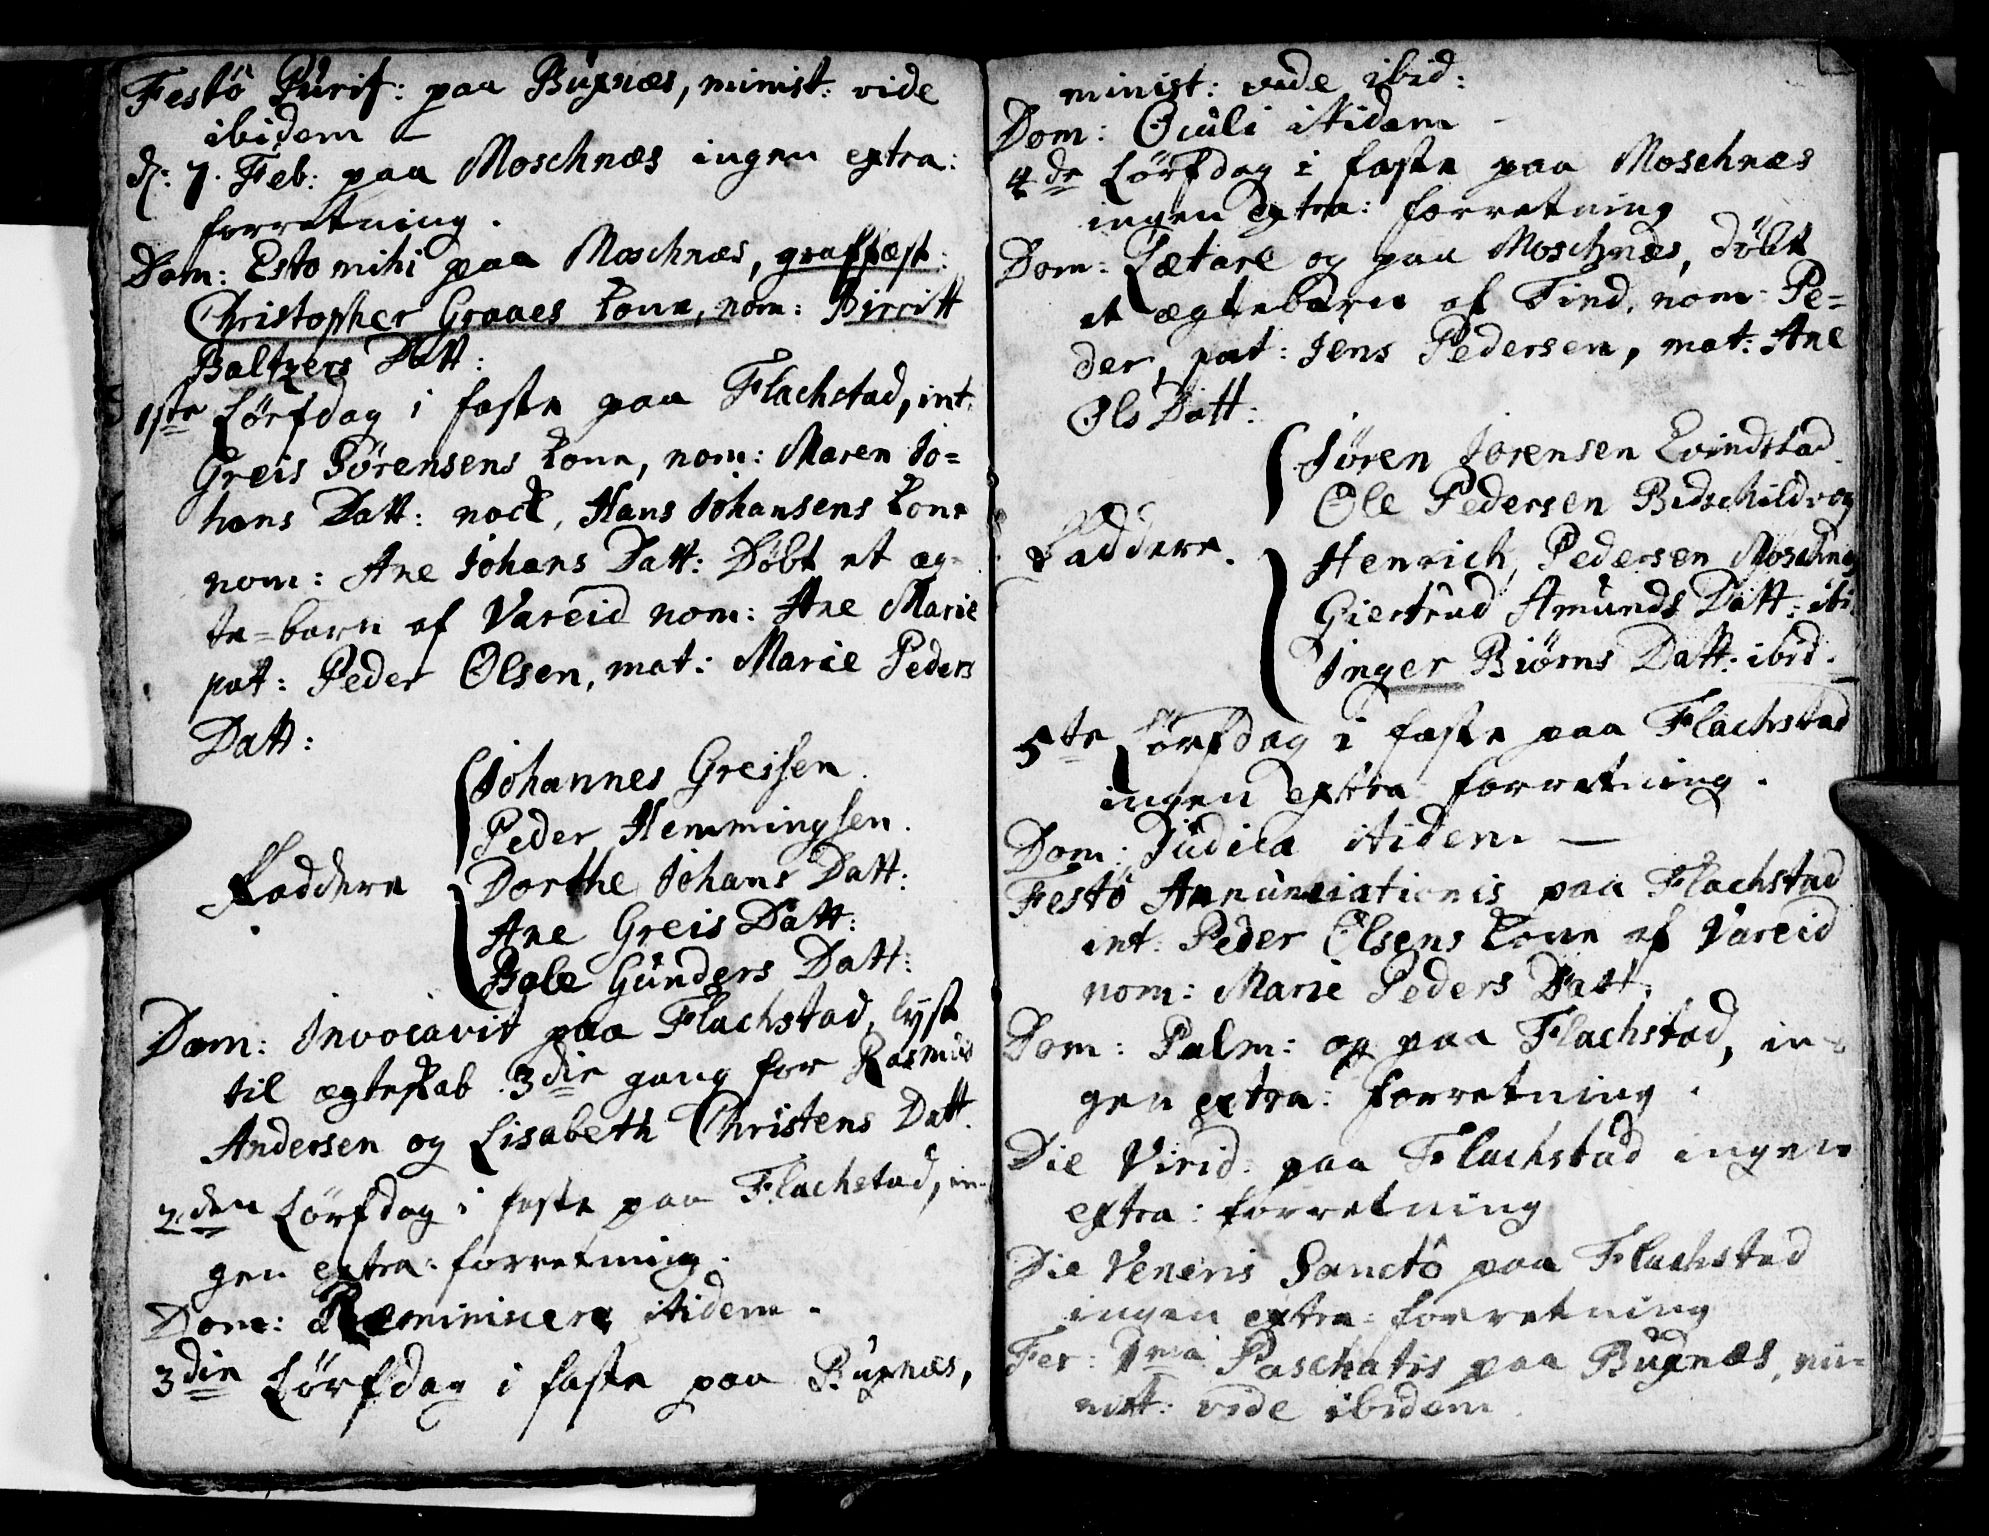 Festô Purif: paa Buxnæs, minist: vide
ibidem
d: 7. Feb: paa Moschnæs ingen extra:
forretning.
Dom: Esto mihi paa Moschnæs, graffæst:
Christopher Graaes Kone, nom: Birritt
Baltzers Datt:
1ste Lørfdag i faste paa Flachstad, int:
Greis Sørensens Kone, nom: Maren Jo=
hans Datt: nock, Hans Johansens Kone
nom: Ane Johans Datt: Døbt et æg=
te=barn af Vareid nom: Ane Marie
pat: Peder Olsen, mat: Marie Peders
Datt:
Johannes Greissen.
Peder Hemmingsen.
Faddere Dorthe Johans Datt:
Ane Greis Datt:
Bole Gunders Datt:
Dom: Invocavit paa Flachstad, lyst
til ægteskab 3die gang for Rasmus
Andersen og Lisabeth Christens Datt.
2den Lørfdag i faste paa Flachstad, in-
gen extra: forretning.
Dom: Reminiscere itidem.
3die Lørfdag i faste paa Buxnæs,
minist: vide ibid:
Dom: Oculi itidem
4de Lørfdag i faste paa Moschnæs
ingen extra: forretning
Dom: Lætare og paa Moschnæs, døbt
et ægtebarn af Tind, nom: Pe=
der, pat: Jens Pedersen, mat: Ane
Ols Datt:
Søren Sorensen Qvindstad
Ole Pedersen
Faddere. Henrich Pedersen Moschnæs
Giertrud Amunds Datt: ibi
Inger Biørns Datt: ibid.
5te Lørfdag i faste paa Flachstad
ingen extra forretning.
Dom: Judica itidem
Festô Annunciationis paa Flachstad
int: Peder Olsens Kone af Vareid
nom: Marie Peders Datt.
Dom: Palm: og paa Flachstad, in=
gen extra: forretning.
Die Virid: paa Flachstad ingen
extra: forretning
Die Veneris Sanctô paa Flachstad
ingen extra: forretning
Fer: 1ma Paschatis paa Buxnæs, mi=
nist: vide ibidem.